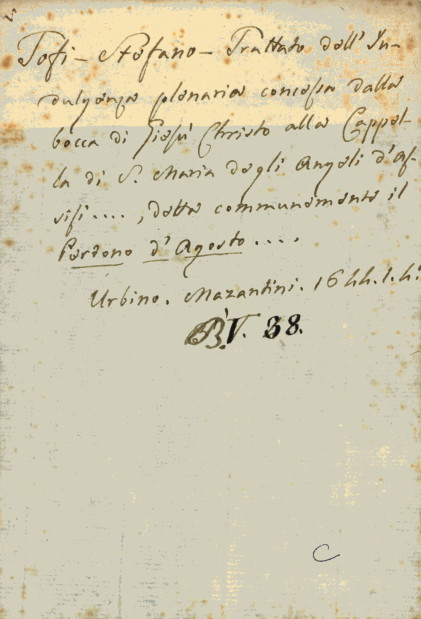 Tosi - Stefano - Trattato dell' In-
dulgenza plenaria concessa dalla
bocca di Giesù Christo alla Cappel-
la di S. Maria degli Angeli d'As-
sisi...., detta communemente il
Perdono d'Agosto....
Urbino. Mazantini. 1644. 1. 4°
V. 38.
C